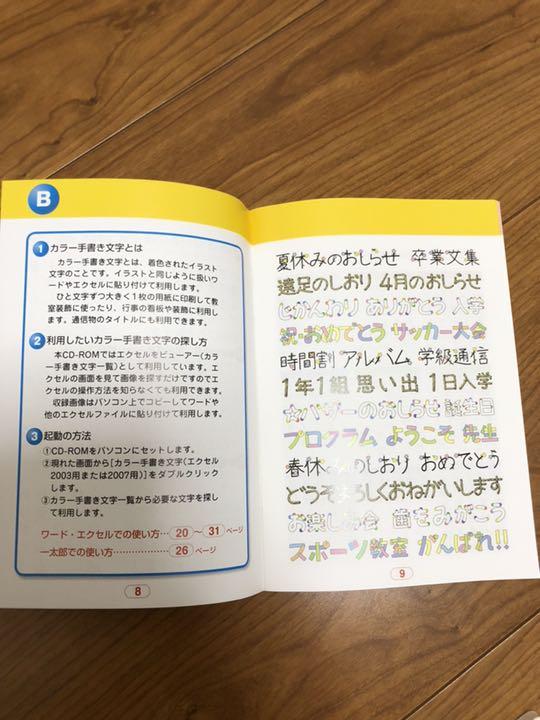 B
1 カラー手書き文字とは
カラー手書き文字とは、着色されたイラスト
文字のことです。イラストと同じように扱いワ
ードやエクセルに貼り付けて利用できます。
ひと文字ずつ大きく1枚の用紙に印刷して教
室装飾に使ったり、行事の看板や装飾に利用し
ます。通信物のタイトルにも利用できます。
2 利用したいカラー手書き文字の探し方
本CD-ROMではエクセルをビューアー(カラ
ー手書き文字一覧)として利用しています。エ
クセルの画面を見て画像を探すだけですのでエ
クセルの操作方法を知らなくても利用できます。
収録画像はパソコン上でコピーしてワードや
他のファイルに貼り付けて利用します。
3 起動の方法
①CD-ROMをパソコンにセットします。
②現れた画面から[カラー手書き文字(エクセル
2003用または2007用)]をダブルクリック
します。
③カラー手書き文字一覧から必要な文字を探し
て利用します。
ワード・エクセルでの使い方…20~31ページ
一太郎での使い方………………26ページ
8
夏休みのおしらせ 卒業文集
遠足のしおり 4月のおしらせ
じかんわり ありがとう 入学
祝・おめでとう サッカー大会
時間割 アルバム 学級通信
1年1組 思い出 1日入学
☆バザーのおしらせ 誕生日
プログラム ようこそ 先生
春休みのしおり おめでとう
どうぞよろしくおねがいします
お楽しみ会 歯をみがこう
スポーツ教室 がんばれ!!
9